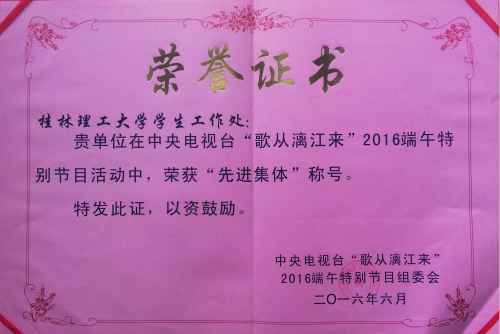 荣誉证书
桂林理工大学学生工作处：
贵单位在中央电视台“歌从漓江来”2016端午特
别节目活动中，荣获“先进集体”称号。
特发此证，以资鼓励。
中央电视台“歌从漓江来”
2016端午特别节目组委会
二〇一六年六月